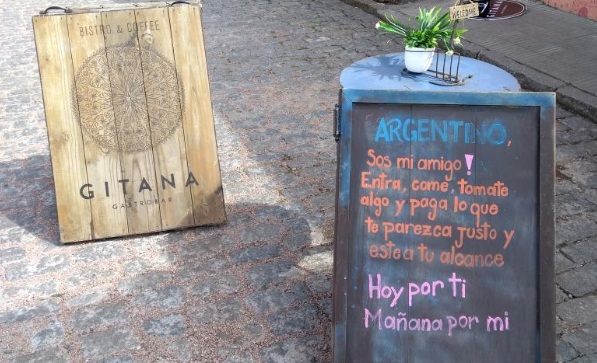 BISTRO & COFFEE
GITANA
GASTROBAR
WELCOME
ARGENTINO,
Sos mi amigo!
Entra, comé, tomate
algo y paga lo que
te parezca justo y
este a tu alcance
Hoy por ti
Mañana por mi